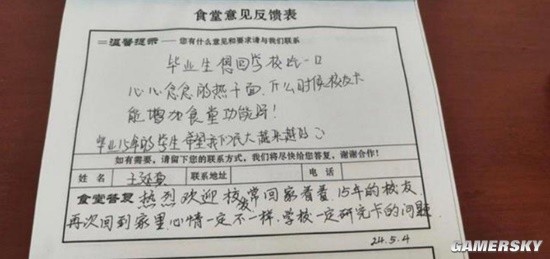 食堂意见反馈表
温馨提示——您有什么意见和要求请与我们联系
毕业生想回学校吃一口
心心念念的热干面，什么时候校友卡
能增加食堂功能呀！
毕业15年的学生 希望 大 越来越好
如有需要，请留下您的联系方式，我们将尽快给您答复，谢谢合作！
姓名 王 联系地址 电话
食堂答复 热烈欢迎校友常回家看看，15年的校友，
再次回到家里心情一定不一样，学校一定研究卡的问题
24.5.4
GAMERSKY